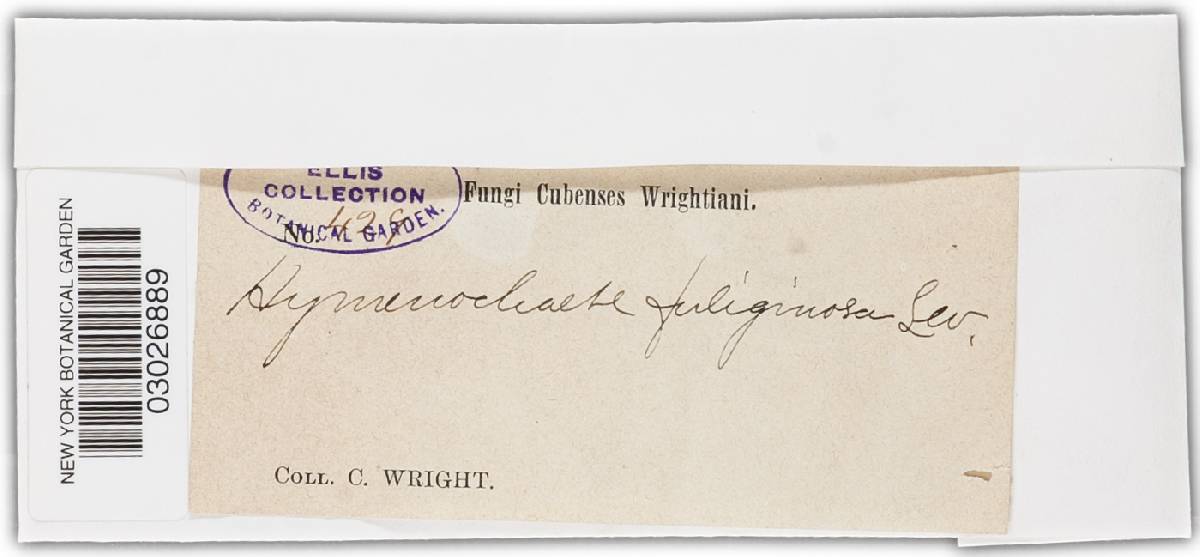 NEW YORK BOTANICAL GARDEN
03026889
ELLIS
COLLECTION
BOTANICAL GARDEN.
Fungi Cubenses Wrightiani.
No. 428
Hymenochaete fuliginosa Lev.
COLL. C. WRIGHT.